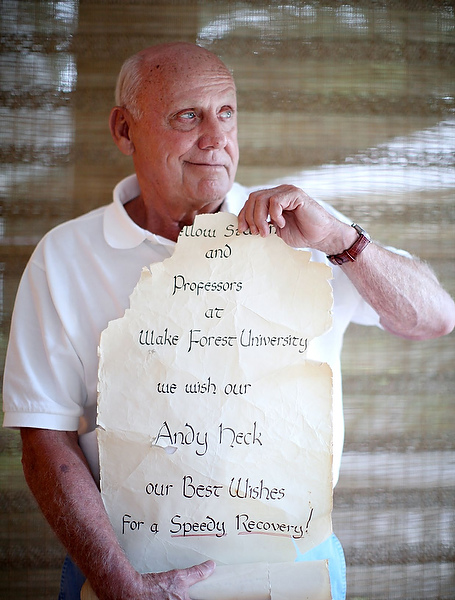 and
Professors
at
Wake Forest University
we wish our
Andy Heck
our Best Wishes
for a Speedy Recovery!